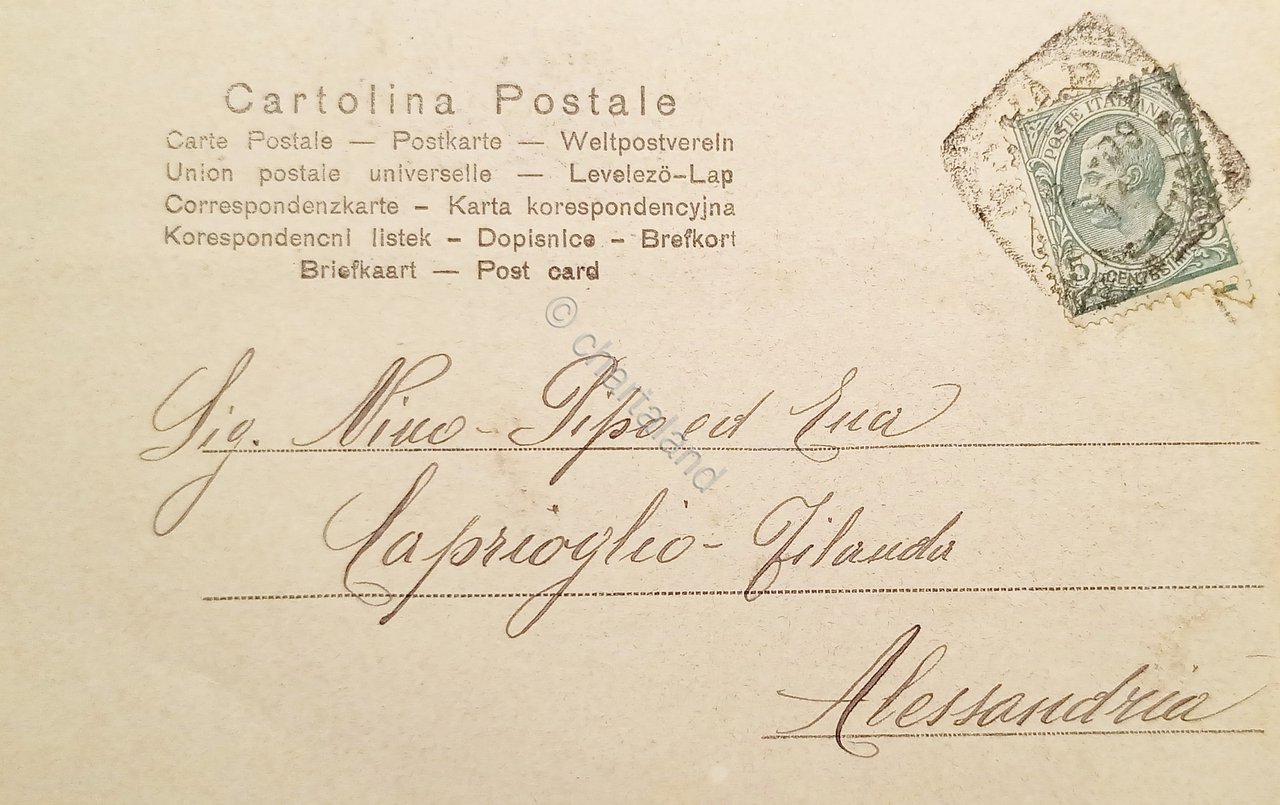 Cartolina Postale
Carte Postale — Postkarte — Weltpostverein
Union postale universelle — Levelezö-Lap
Correspondenzkarte - Karta korespondencyjna
Korespondencni listek - Dopisnice - Brefkort
Briefkaart — Post card
POSTE ITALIANE
5 CENTESIMI
© chartaland
Sig. Nino - Pipo ed Ena
Caprioglio - Filanda
Alessandria